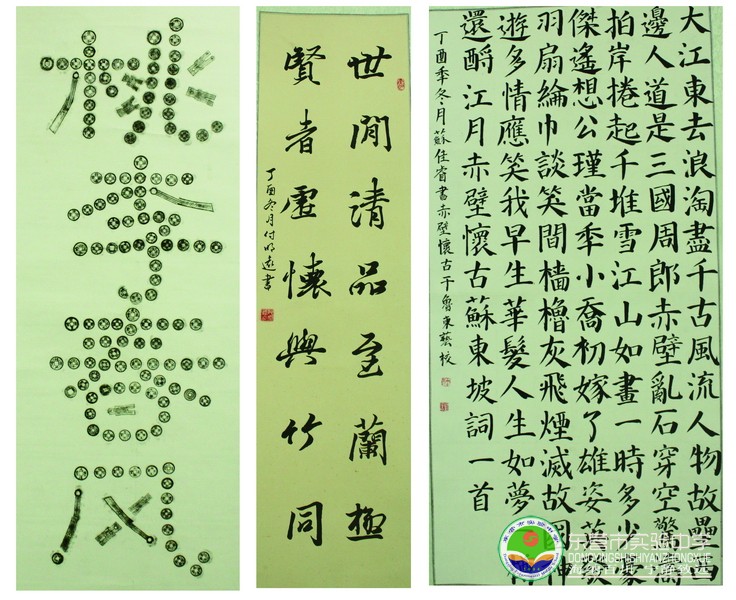 桃李春风
世閒清品至蘭極
賢者虛懷與竹同
丁酉冬月付明遠書
大江東去浪淘盡千古風流人物故壘西
邊人道是三國周郎赤壁亂石穿空驚
拍岸捲起千堆雪江山如畫一時多少豪
傑遙想公瑾當秊小喬初嫁了雄姿英發
羽扇綸巾談笑間檣櫓灰飛煙滅故國神
遊多情應笑我早生華髮人生如夢
還酹江月赤壁懷古蘇東坡詞一首
丁酉秊冬月蘇佳睿書赤壁懷古于魯東藝校
东营市实验中学
DONGYINGSHISHIYANZHONGXUE